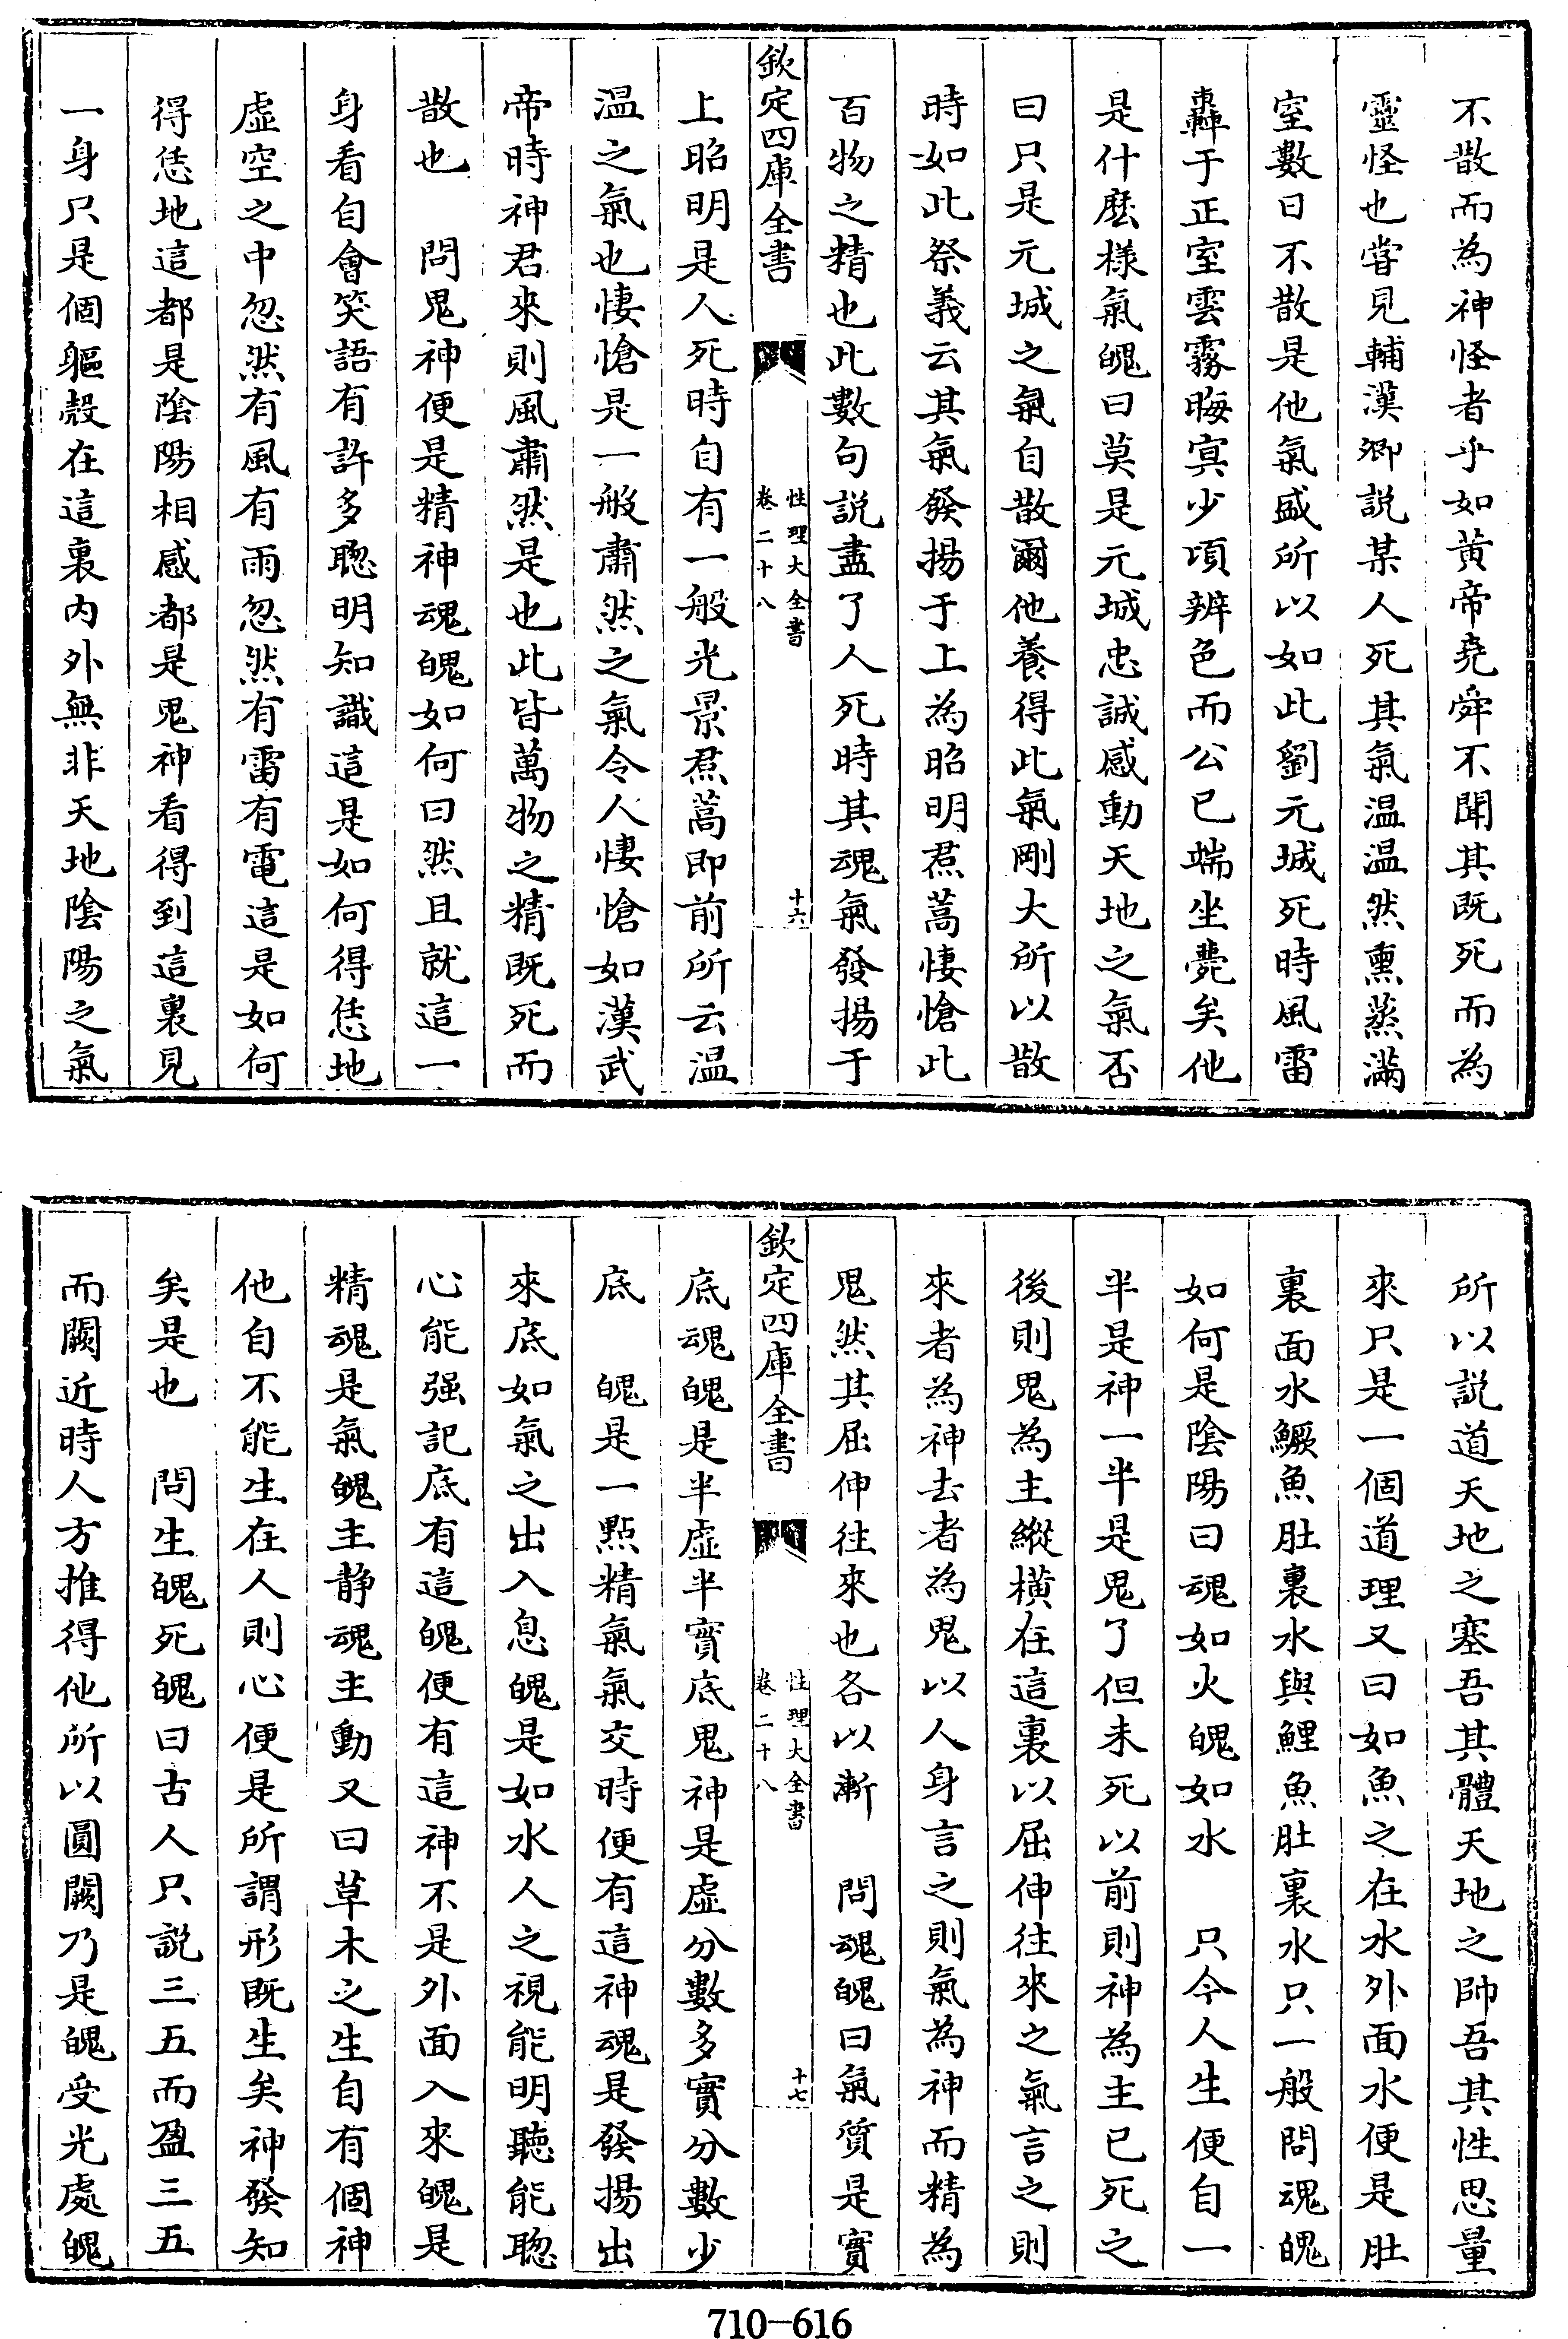 不散而為神怪者乎如黄帝堯舜不聞其既死而為
靈怪也嘗見輔漢卿説某人死其氣温温然熏蒸滿
室數日不散是他氣盛所以如此劉元城死時風雷
轟于正室雲霧晦㝠少頃辨色而公已端坐薨矣他
是什麽樣氣魄曰莫是元城忠誠感動天地之氣否
曰只是元城之氣自散爾他養得此氣剛大所以散
時如此祭義云其氣發揚于上為昭明焄蒿悽愴此
百物之精也此數句説盡了人死時其魂氣發揚于
欽定四庫全書
性理大全書
卷二十八
十六
上昭明是人死時自有一般光景焄蒿即前所云温
温之氣也悽愴是一般肅然之氣令人悽愴如漢武
帝時神君來則風肅然是也此皆萬物之精既死而
散也　問鬼神便是精神魂魄如何曰然且就這一
身看自會笑語有許多聰明知識這是如何得恁地
虛空之中忽然有風有雨忽然有雷有電這是如何
得恁地這都是陰陽相感都是鬼神看得到這裏見
一身只是個軀殻在這裏内外無非天地陰陽之氣
所以説道天地之塞吾其體天地之帥吾其性思量
來只是一個道理又曰如魚之在水外面水便是肚
裏面水鱖魚肚裏水與鯉魚肚裏水只一般問魂魄
如何是陰陽曰魂如火魄如水　只今人生便自一
半是神一半是鬼了但未死以前則神為主已死之
後則鬼為主縱横在這裏以屈伸往來之氣言之則
來者為神去者為鬼以人身言之則氣為神而精為
鬼然其屈伸往來也各以漸　問魂魄曰氣質是實
欽定四庫全書
性理大全書
卷二十八
十七
底魂魄是半虛半實底鬼神是虛分數多實分數少
底　魄是一點精氣氣交時便有這神魂是發揚出
來底如氣之出入息魄是如水人之視能明聽能聰
心能强記底有這魄便有這神不是外面入來魄是
精魂是氣魄主静魂主動又曰草木之生自有個神
他自不能生在人則心便是所謂形既生矣神發知
矣是也　問生魄死魄曰古人只説三五而盈三五
而闕近時人方推得他所以圓闕乃是魄受光處魄
710-616